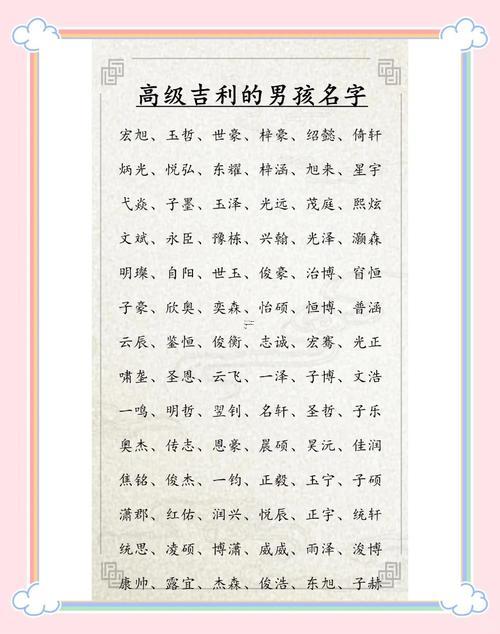 高级吉利的男孩名字
宏旭、玉哲、世豪、梓豪、绍懿、倚轩
炳光、悦弘、东耀、梓涵、旭来、星宇
弋焱、子墨、玉泽、光远、茂庭、熙炫
文斌、永臣、豫栋、兴翰、光泽、灏森
明璨、自阳、世玉、俊豪、治博、容恒
子豪、欣奥、奕森、怡硕、恒博、普涵
云辰、鉴恒、俊衡、志诚、宏骞、光正
啸垄、圣恩、云飞、一泽、子博、文浩
一鸣、明哲、翌钊、名轩、圣哲、子乐
奥杰、传志、恩豪、晨硕、昊沅、佳润
焦铭、俊杰、一钧、正毅、玉宁、子硕
潇郡、红佑、润兴、悦辰、正宇、统轩
统思、凌硕、博潇、威威、雨泽、浚博
康帅、露宜、杰森、俊浩、东旭、子赫